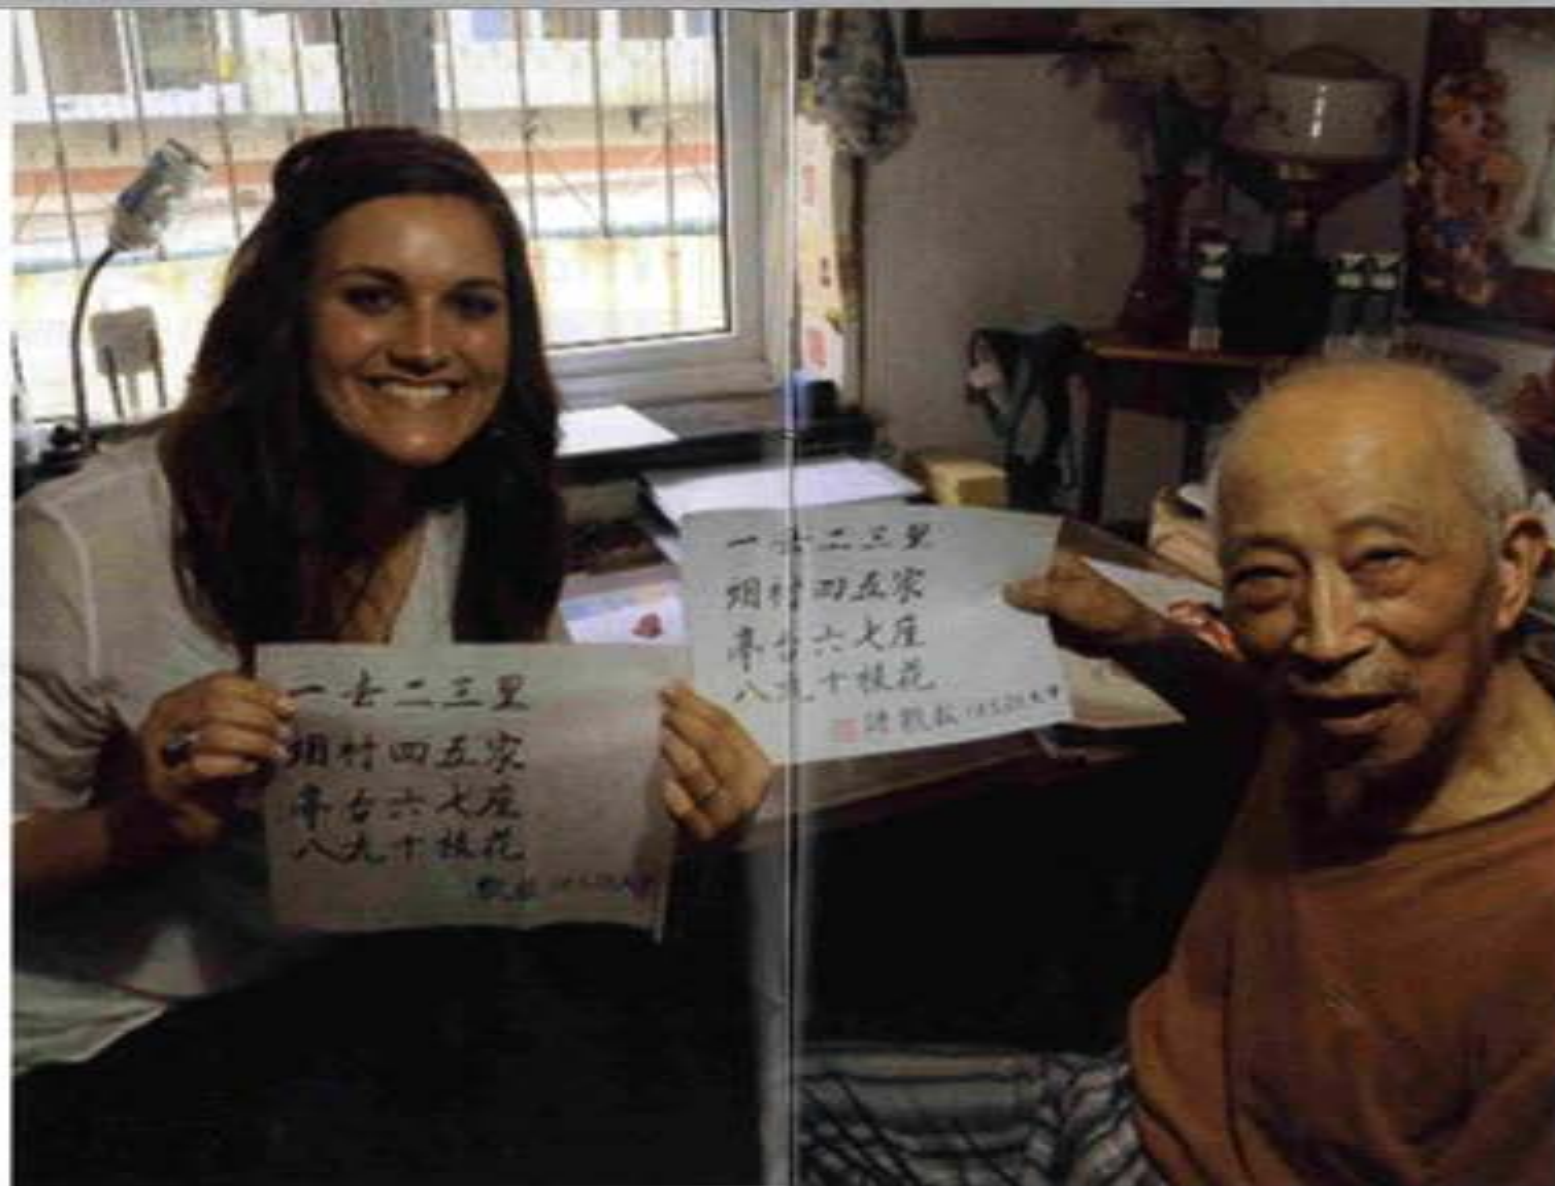 一去二三里
烟村四五家
亭台六七座
八九十枝花
一去二三里
烟村四五家
亭台六七座
八九十枝花